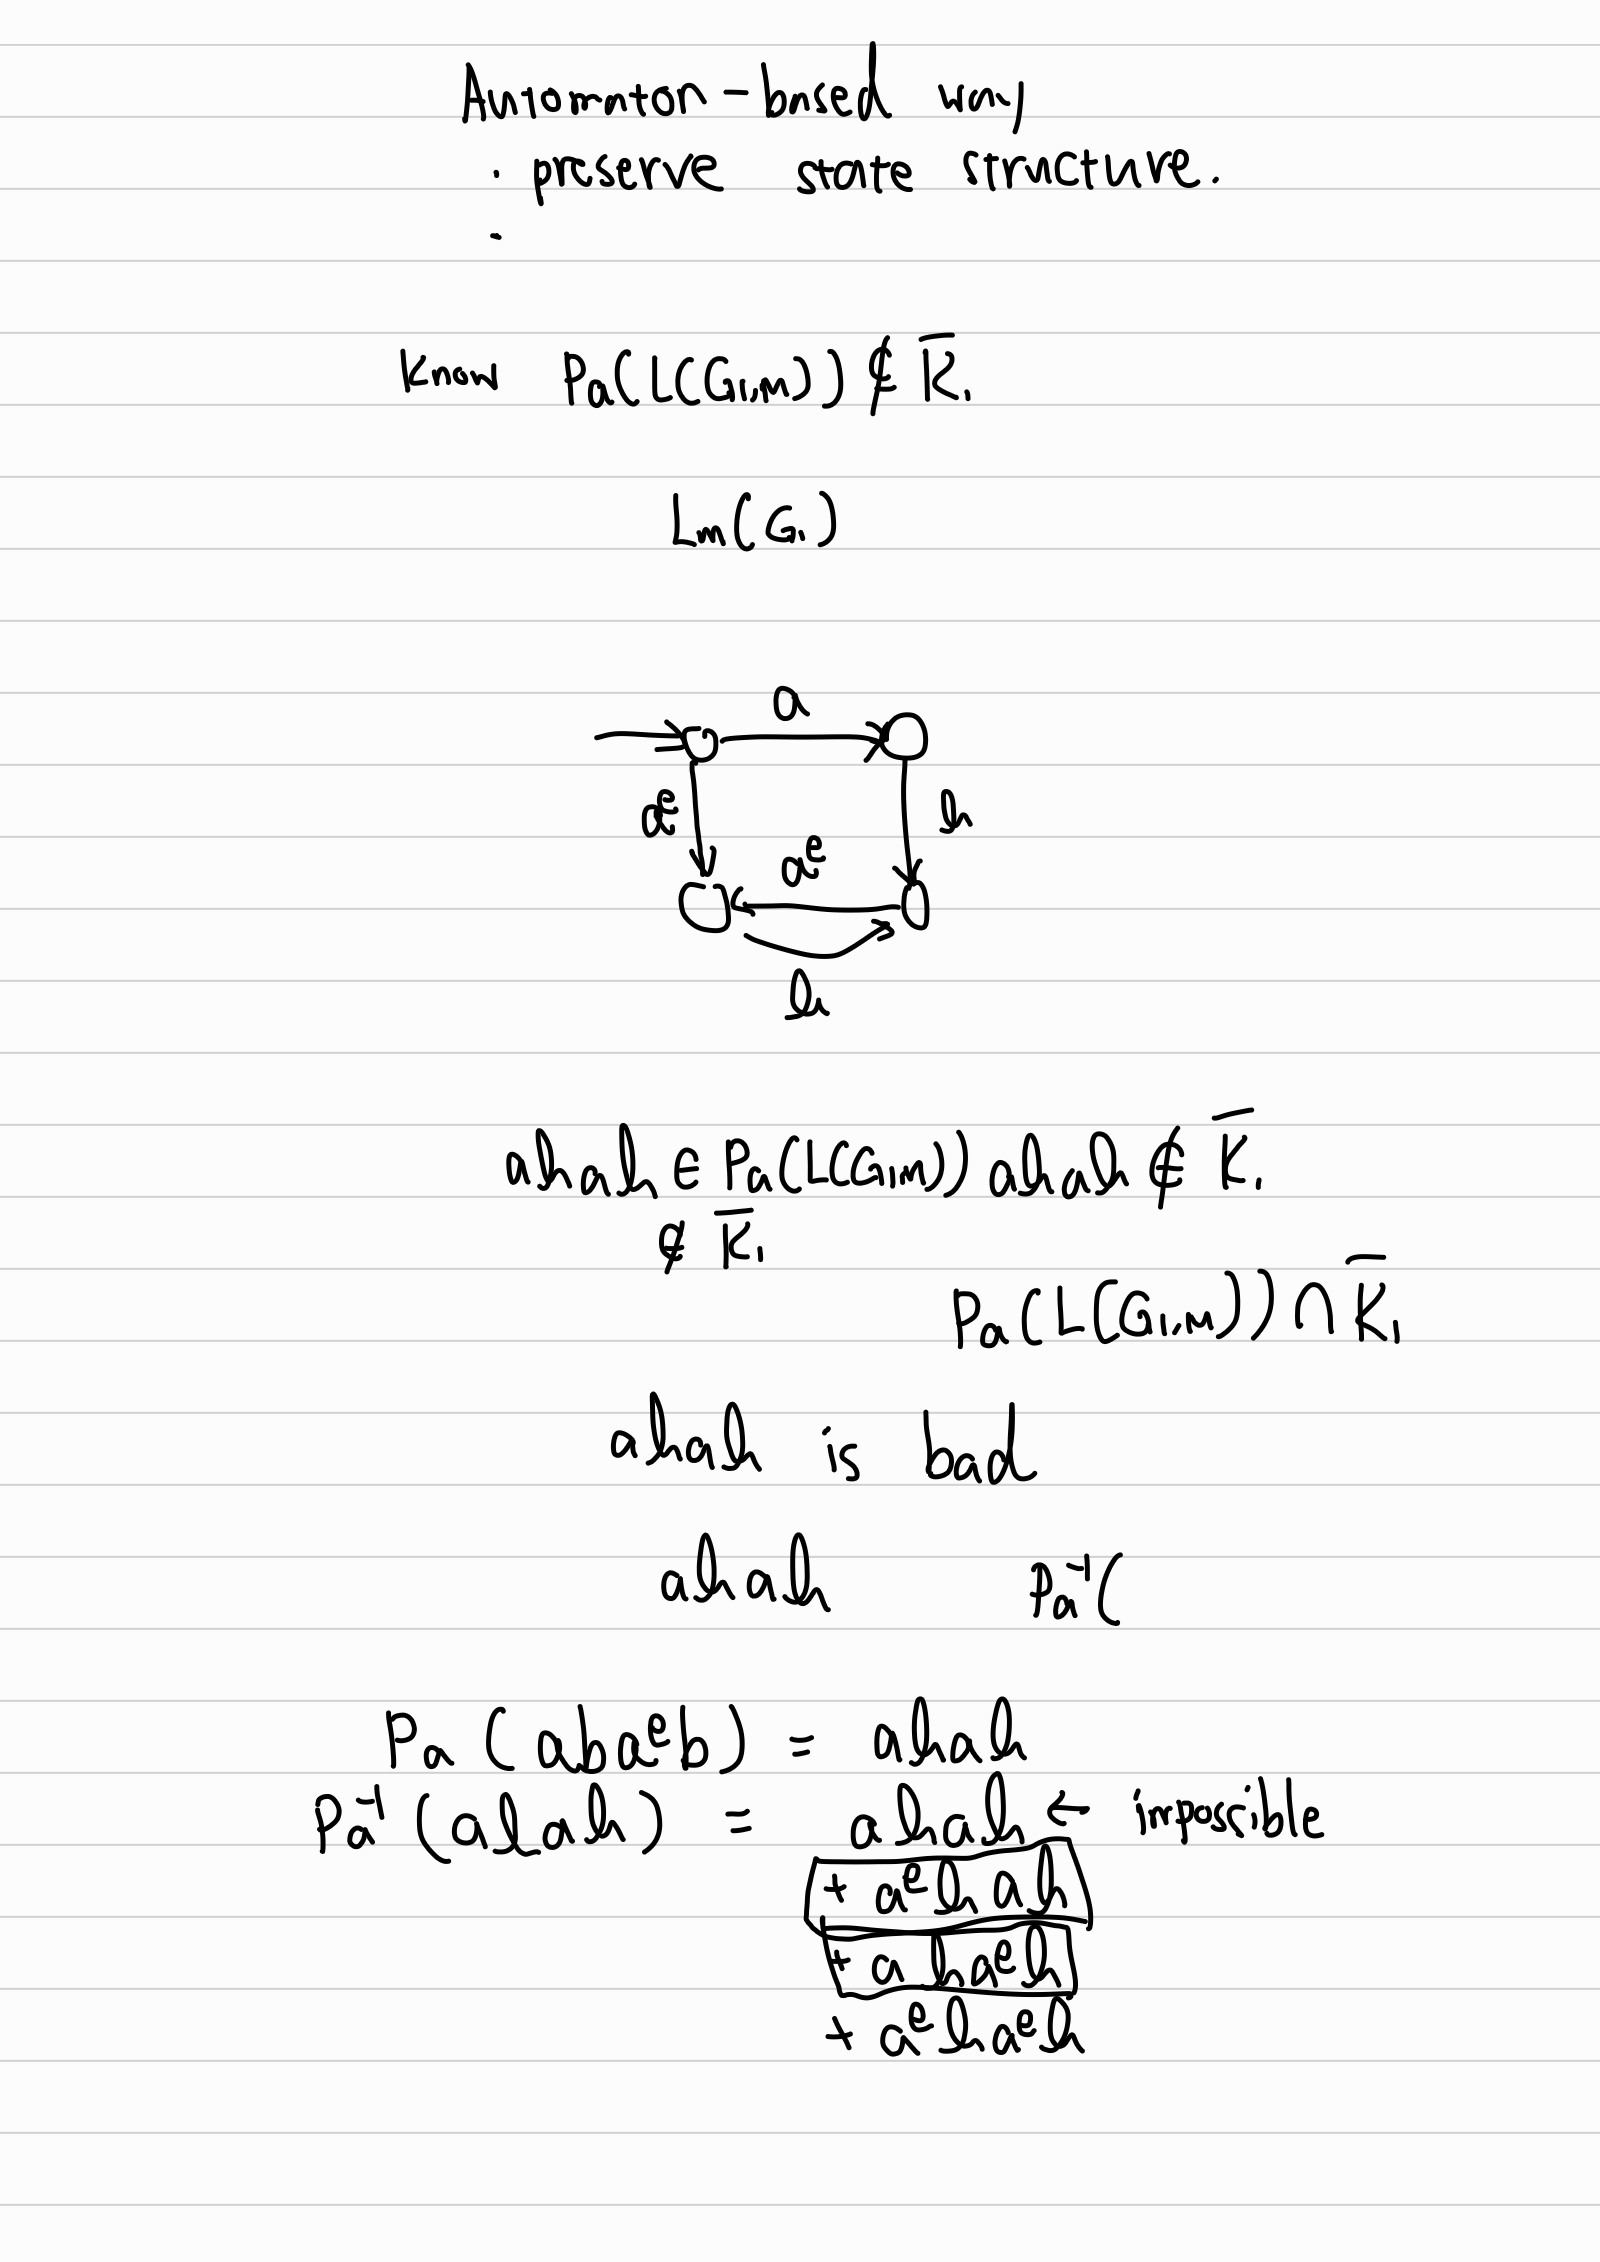 Automaton-based way
· preserve state structure.
·
Know Pₐ(L(G₁,M)) ⊄ K̅₁
Lm(G₁)
a
aᵉ
b
aᵉ
b
abab ∈ Pₐ(L(G₁,M)) abab ∉ K̅₁
∉ K̅₁
Pₐ(L(G₁,M)) ∩ K̅₁
abab is bad
abab Pₐ⁻¹(
Pₐ(abaᵉb) = abab
Pₐ⁻¹(abab) = abab ← impossible
+ aᵉbab
+ abaᵉb
+ aᵉbaᵉb